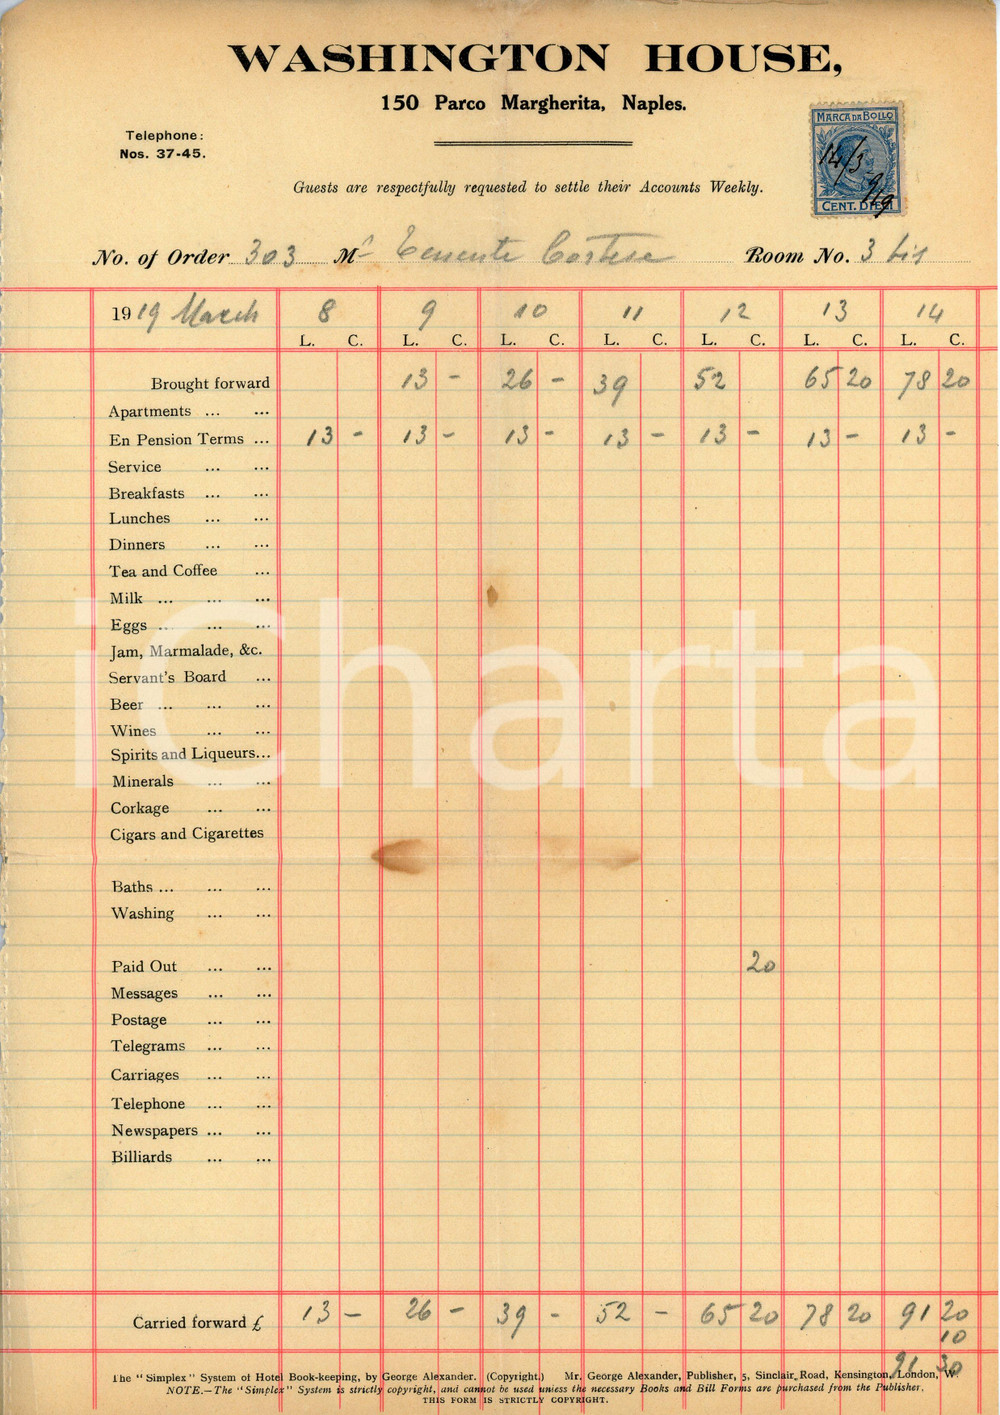 WASHINGTON HOUSE,
150 Parco Margherita, Naples.
Telephone:
Nos. 37-45.
MARCA DA BOLLO
14/3 919
CENT. DIECI
Guests are respectfully requested to settle their Accounts Weekly.
No. of Order 303 Mr Tenente Cortese Room No. 3 bis
1919 March 8 9 10 11 12 13 14
L. C. L. C. L. C. L. C. L. C. L. C. L. C.
Brought forward 13 - 26 - 39 52 65 20 78 20
Apartments ... ...
En Pension Terms ... 13 - 13 - 13 - 13 - 13 - 13 - 13 -
Service ... ...
Breakfasts ... ...
Lunches ... ...
Dinners ... ...
Tea and Coffee ...
Milk ... ... ...
Eggs ... ... ...
Jam, Marmalade, &c.
Servant's Board ...
Beer ... ... ...
Wines ... ...
Spirits and Liqueurs...
Minerals ... ...
Corkage ... ...
Cigars and Cigarettes
Baths ... ... ...
Washing ... ...
Paid Out ... ... 20
Messages ... ...
Postage ... ...
Telegrams ... ...
Carriages ... ...
Telephone ... ...
Newspapers ... ...
Billiards ... ...
Carried forward £ 13 - 26 - 39 - 52 - 65 20 78 20 91 20
10
91 30
The "Simplex" System of Hotel Book-keeping, by George Alexander. (Copyright.) Mr. George Alexander, Publisher, 5, Sinclair Road, Kensington, London, W.
NOTE.—The "Simplex" System is strictly copyright, and cannot be used unless the necessary Books and Bill Forms are purchased from the Publisher.
THIS FORM IS STRICTLY COPYRIGHT.
iCharta